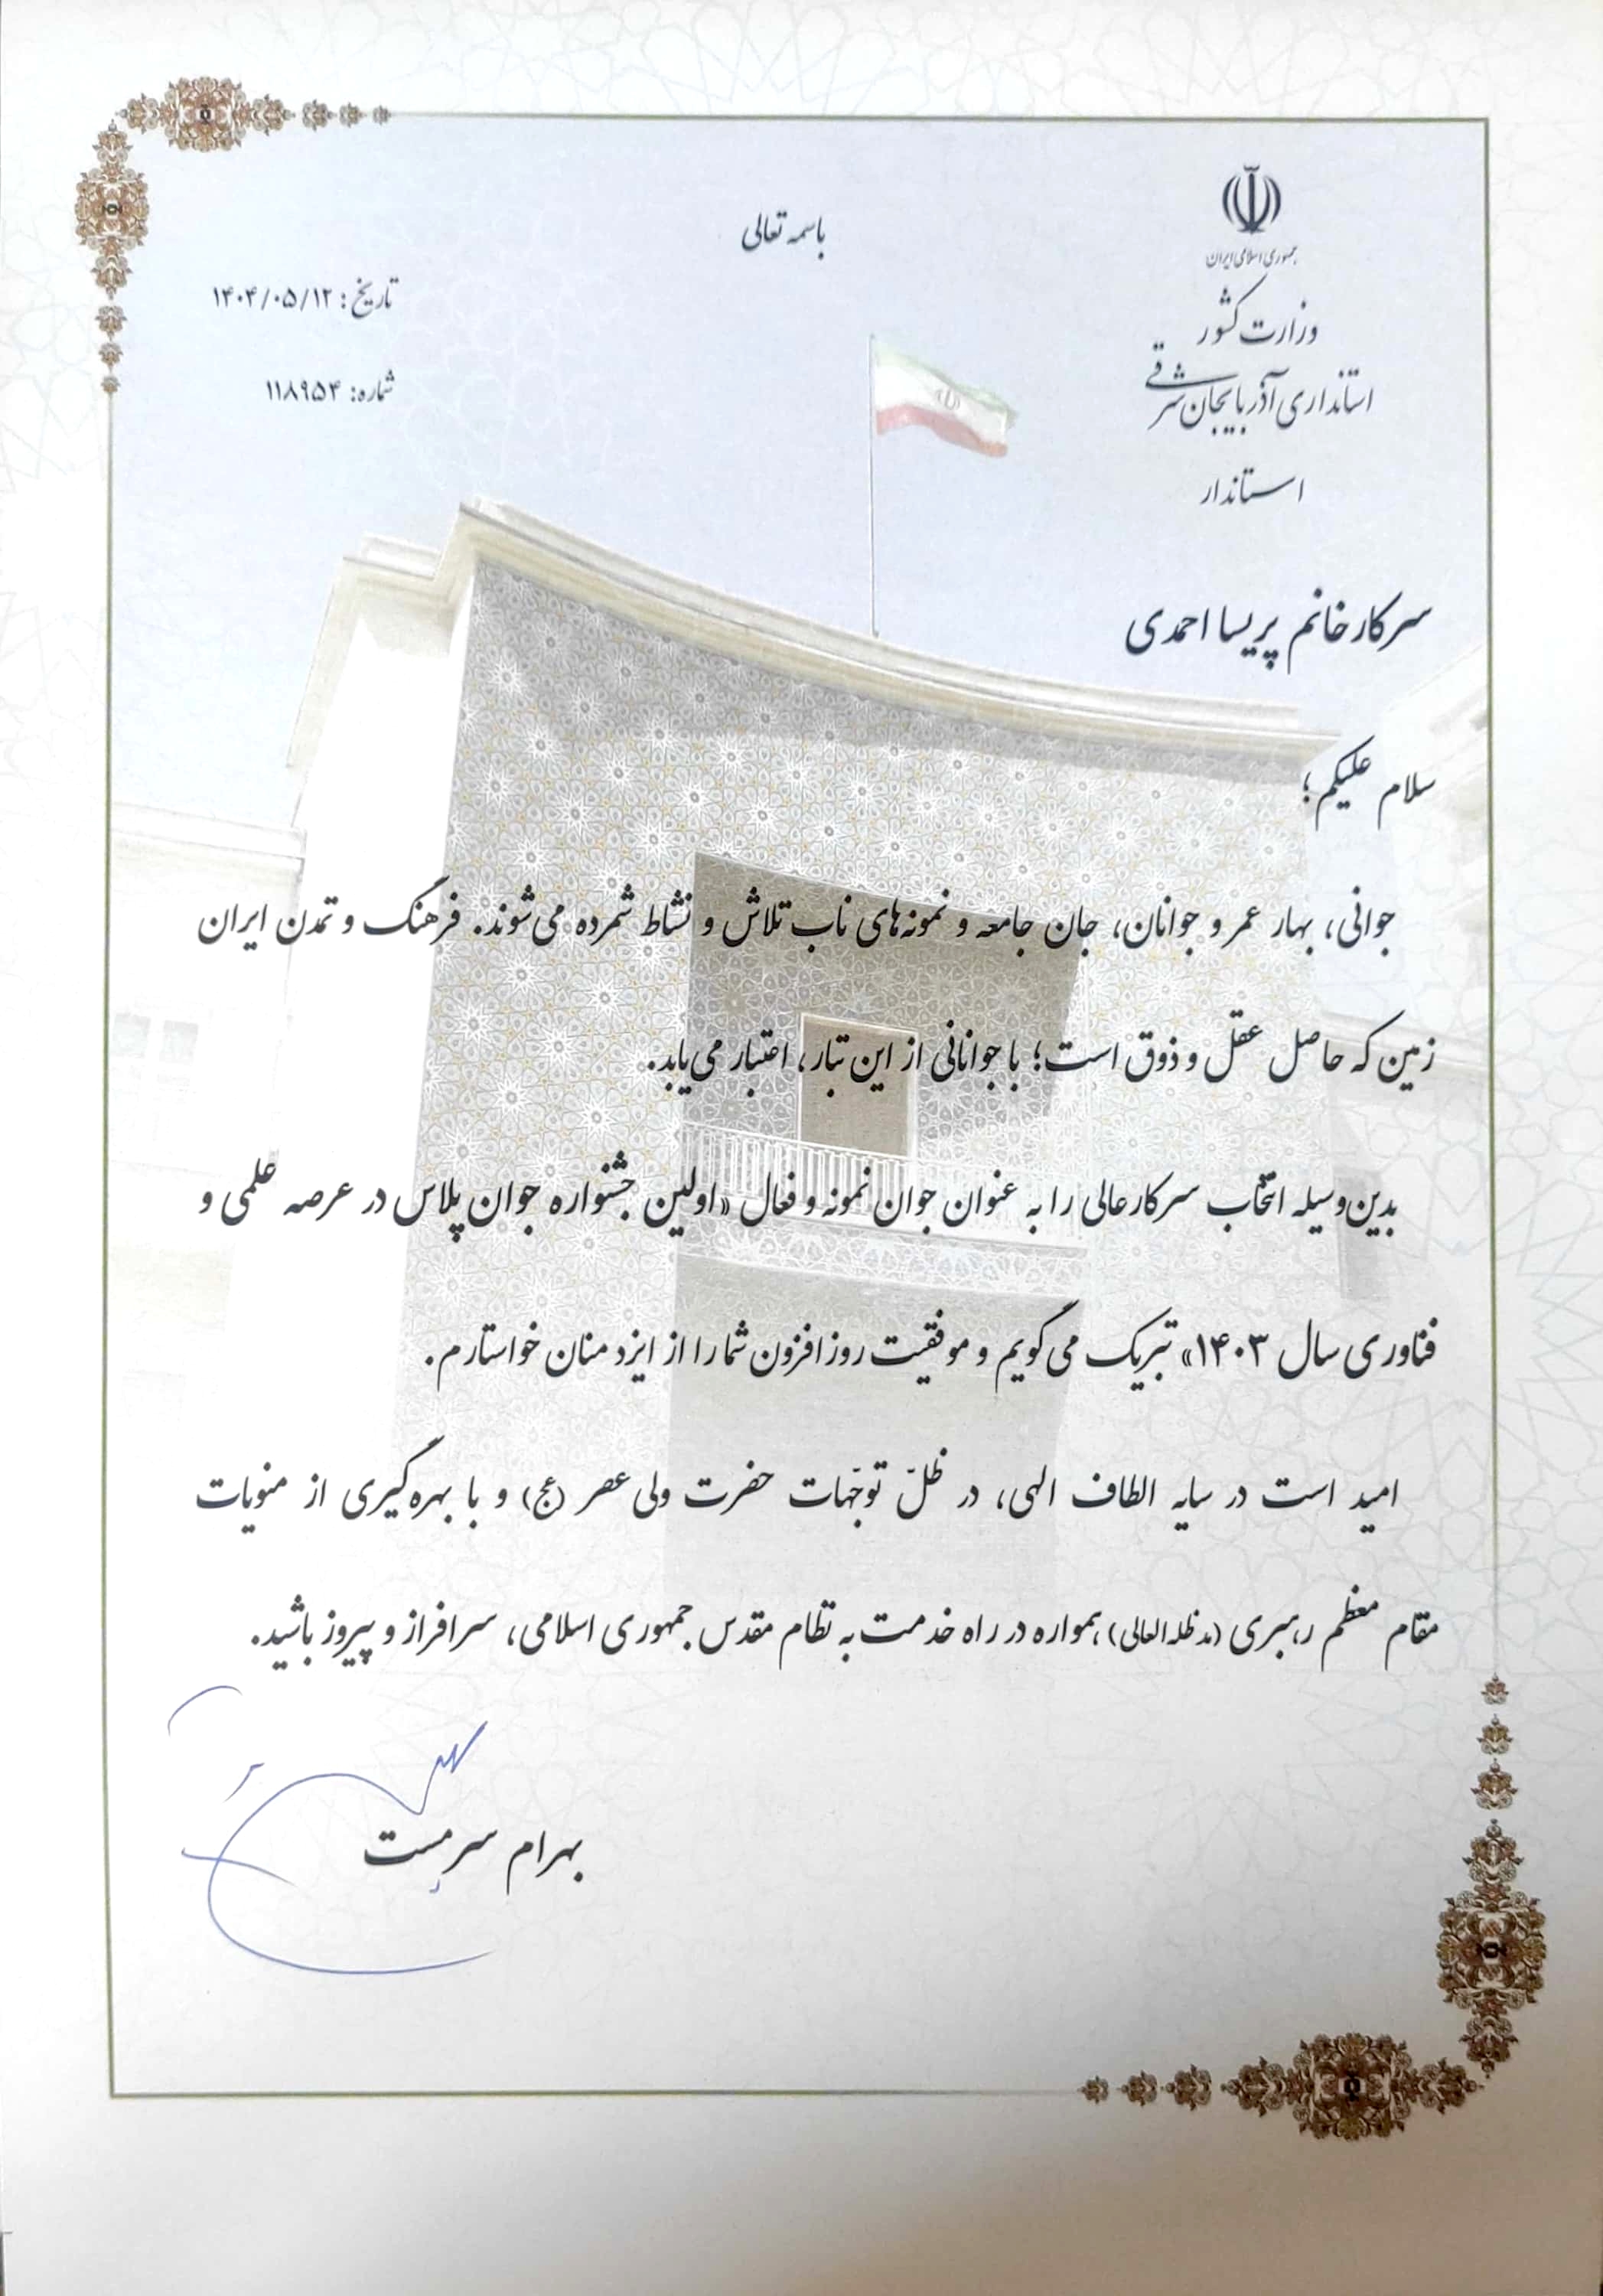 باسمه تعالی
جمهوری اسلامی ایران
وزارت کشور
استانداری آذربایجان شرقی
استاندار
تاریخ: ۱۴۰۴/۰۵/۱۲
شماره: ۱۱۸۹۵۴
سرکار خانم پریسا احمدی
سلام علیکم؛
جوانی، بهار عمر و جوانان، جان جامعه و نمونه‌های ناب تلاش و نشاط شمرده می‌شوند. فرهنگ و تمدن ایران
زمین که حاصل عقل و ذوق است؛ با جوانانی از این تبار، اعتبار می‌یابد.
بدین‌وسیله انتخاب سرکارعالی را به عنوان جوان نمونه و فعال «اولین جشنواره جوان پلاس در عرصه علمی و
فناوری سال ۱۴۰۳» تبریک می‌گویم و موفقیت روزافزون شما را از ایزد منان خواستارم.
امید است در سایه الطاف الهی، در ظلّ توجّهات حضرت ولی عصر (عج) و با بهره‌گیری از منویات
مقام معظم رهبری (مدظله العالی)، همواره در راه خدمت به نظام مقدس جمهوری اسلامی، سرافراز و پیروز باشید.
بهرام سرمست